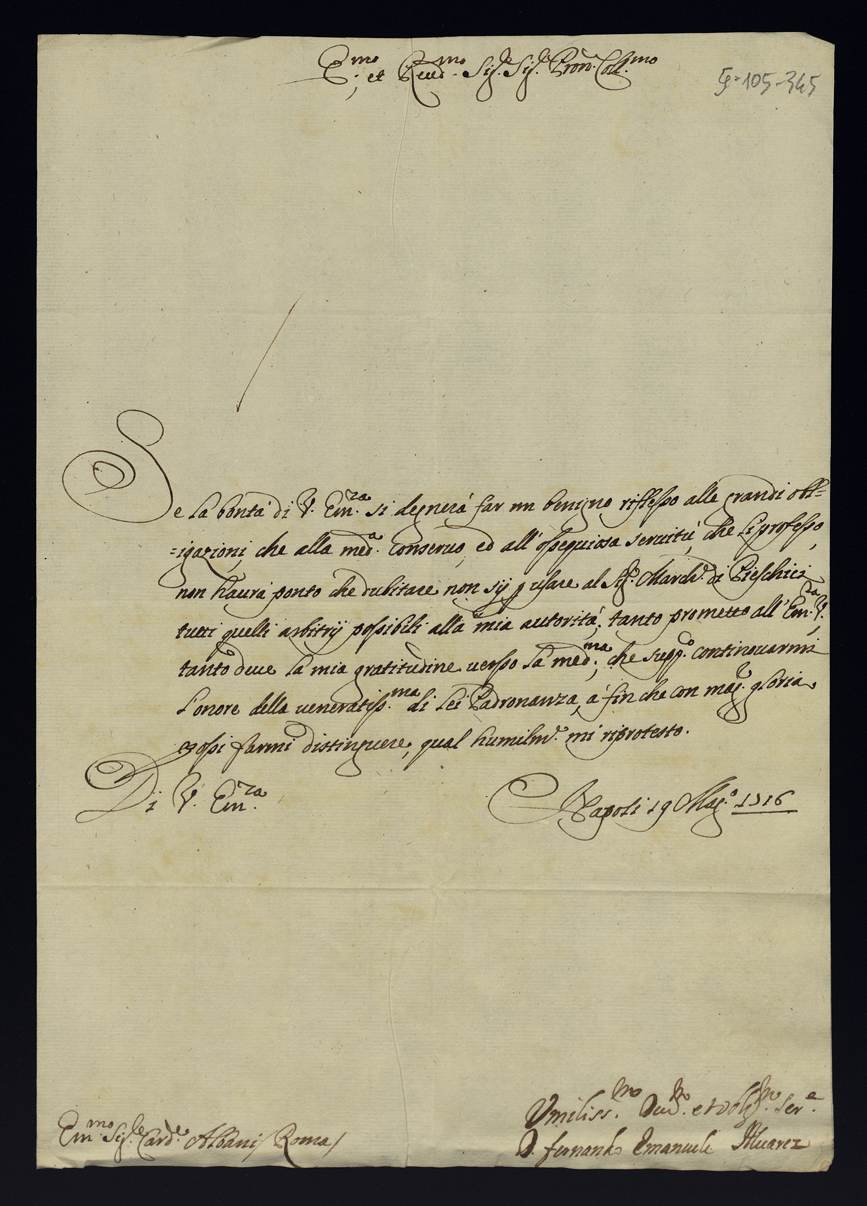 E.mo et Reud.mo Sig.r Sig.r Pron. Coll.mo
5-105-345
Se la bontà di V. Em.za si degnerà far un benigno riflesso alle grandi obl=
=igazioni, che alla med.a conservo, ed all'ossequiosa servitù, che li professo,
non haurà ponto che dubitare non sij p usare al Sig.r March.e di
tutti quelli arbitrij possibili alla mia autorità, tanto prometto all'Em.za V.,
tanto deue la mia gratitudine verso la med.ma, che supp.o continouarmi
l'onore della veneratiss.ma di lei Padronanza, a fin che con mag.r gloria
possi farmi distinguere, qual humilm.e mi riprotesto.
Di V. Em.za
Napoli 19 Mag.o 1716
Umiliss.mo Deu.mo et obb.mo Ser.e
D. fernando Emanuele Alvarez
Em.mo Sig.re Card.e Albani / Roma /